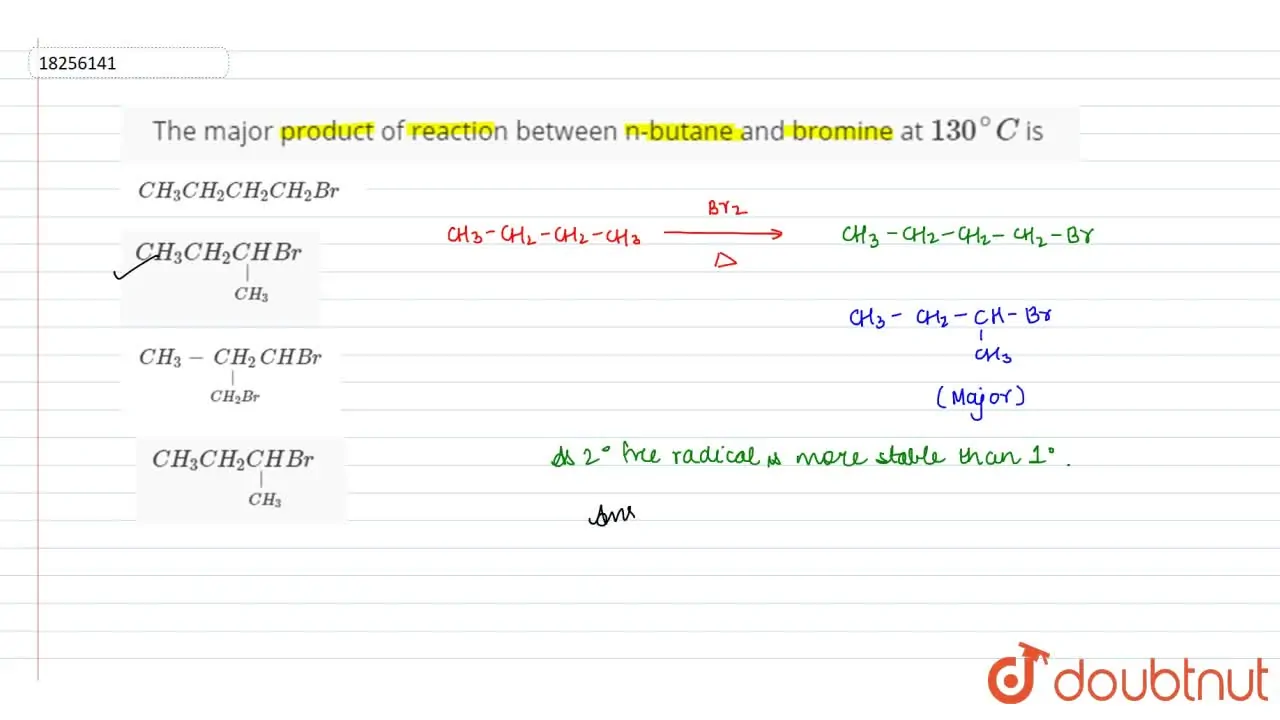 18256141
The major product of reaction between n-butane and bromine at 130°C is
CH₃CH₂CH₂CH₂Br
CH₃CH₂CHBr
|
CH₃
CH₃ − CH₂CHBr
|
CH₂Br
CH₃CH₂CHBr
|
CH₃
CH₃-CH₂-CH₂-CH₃
Br₂
Δ
CH₃-CH₂-CH₂-CH₂-Br
CH₃-CH₂-CH-Br
|
CH₃
(Major)
As 2° free radical is more stable than 1°.
Ans
doubtnut